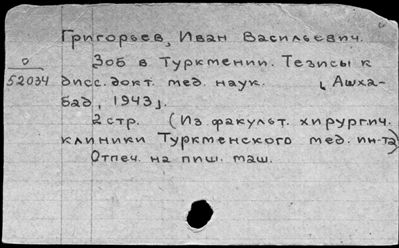 Григорьев, Иван Васильевич.
Зоб в Туркмении. Тезисы к
о
52034
дисс. докт. мед. наук. [Ашха-
бад, 1943].
2 стр. (Из факульт. хирургич.
клиники Туркменского мед. ин-та)
Отпеч. на пиш. маш.